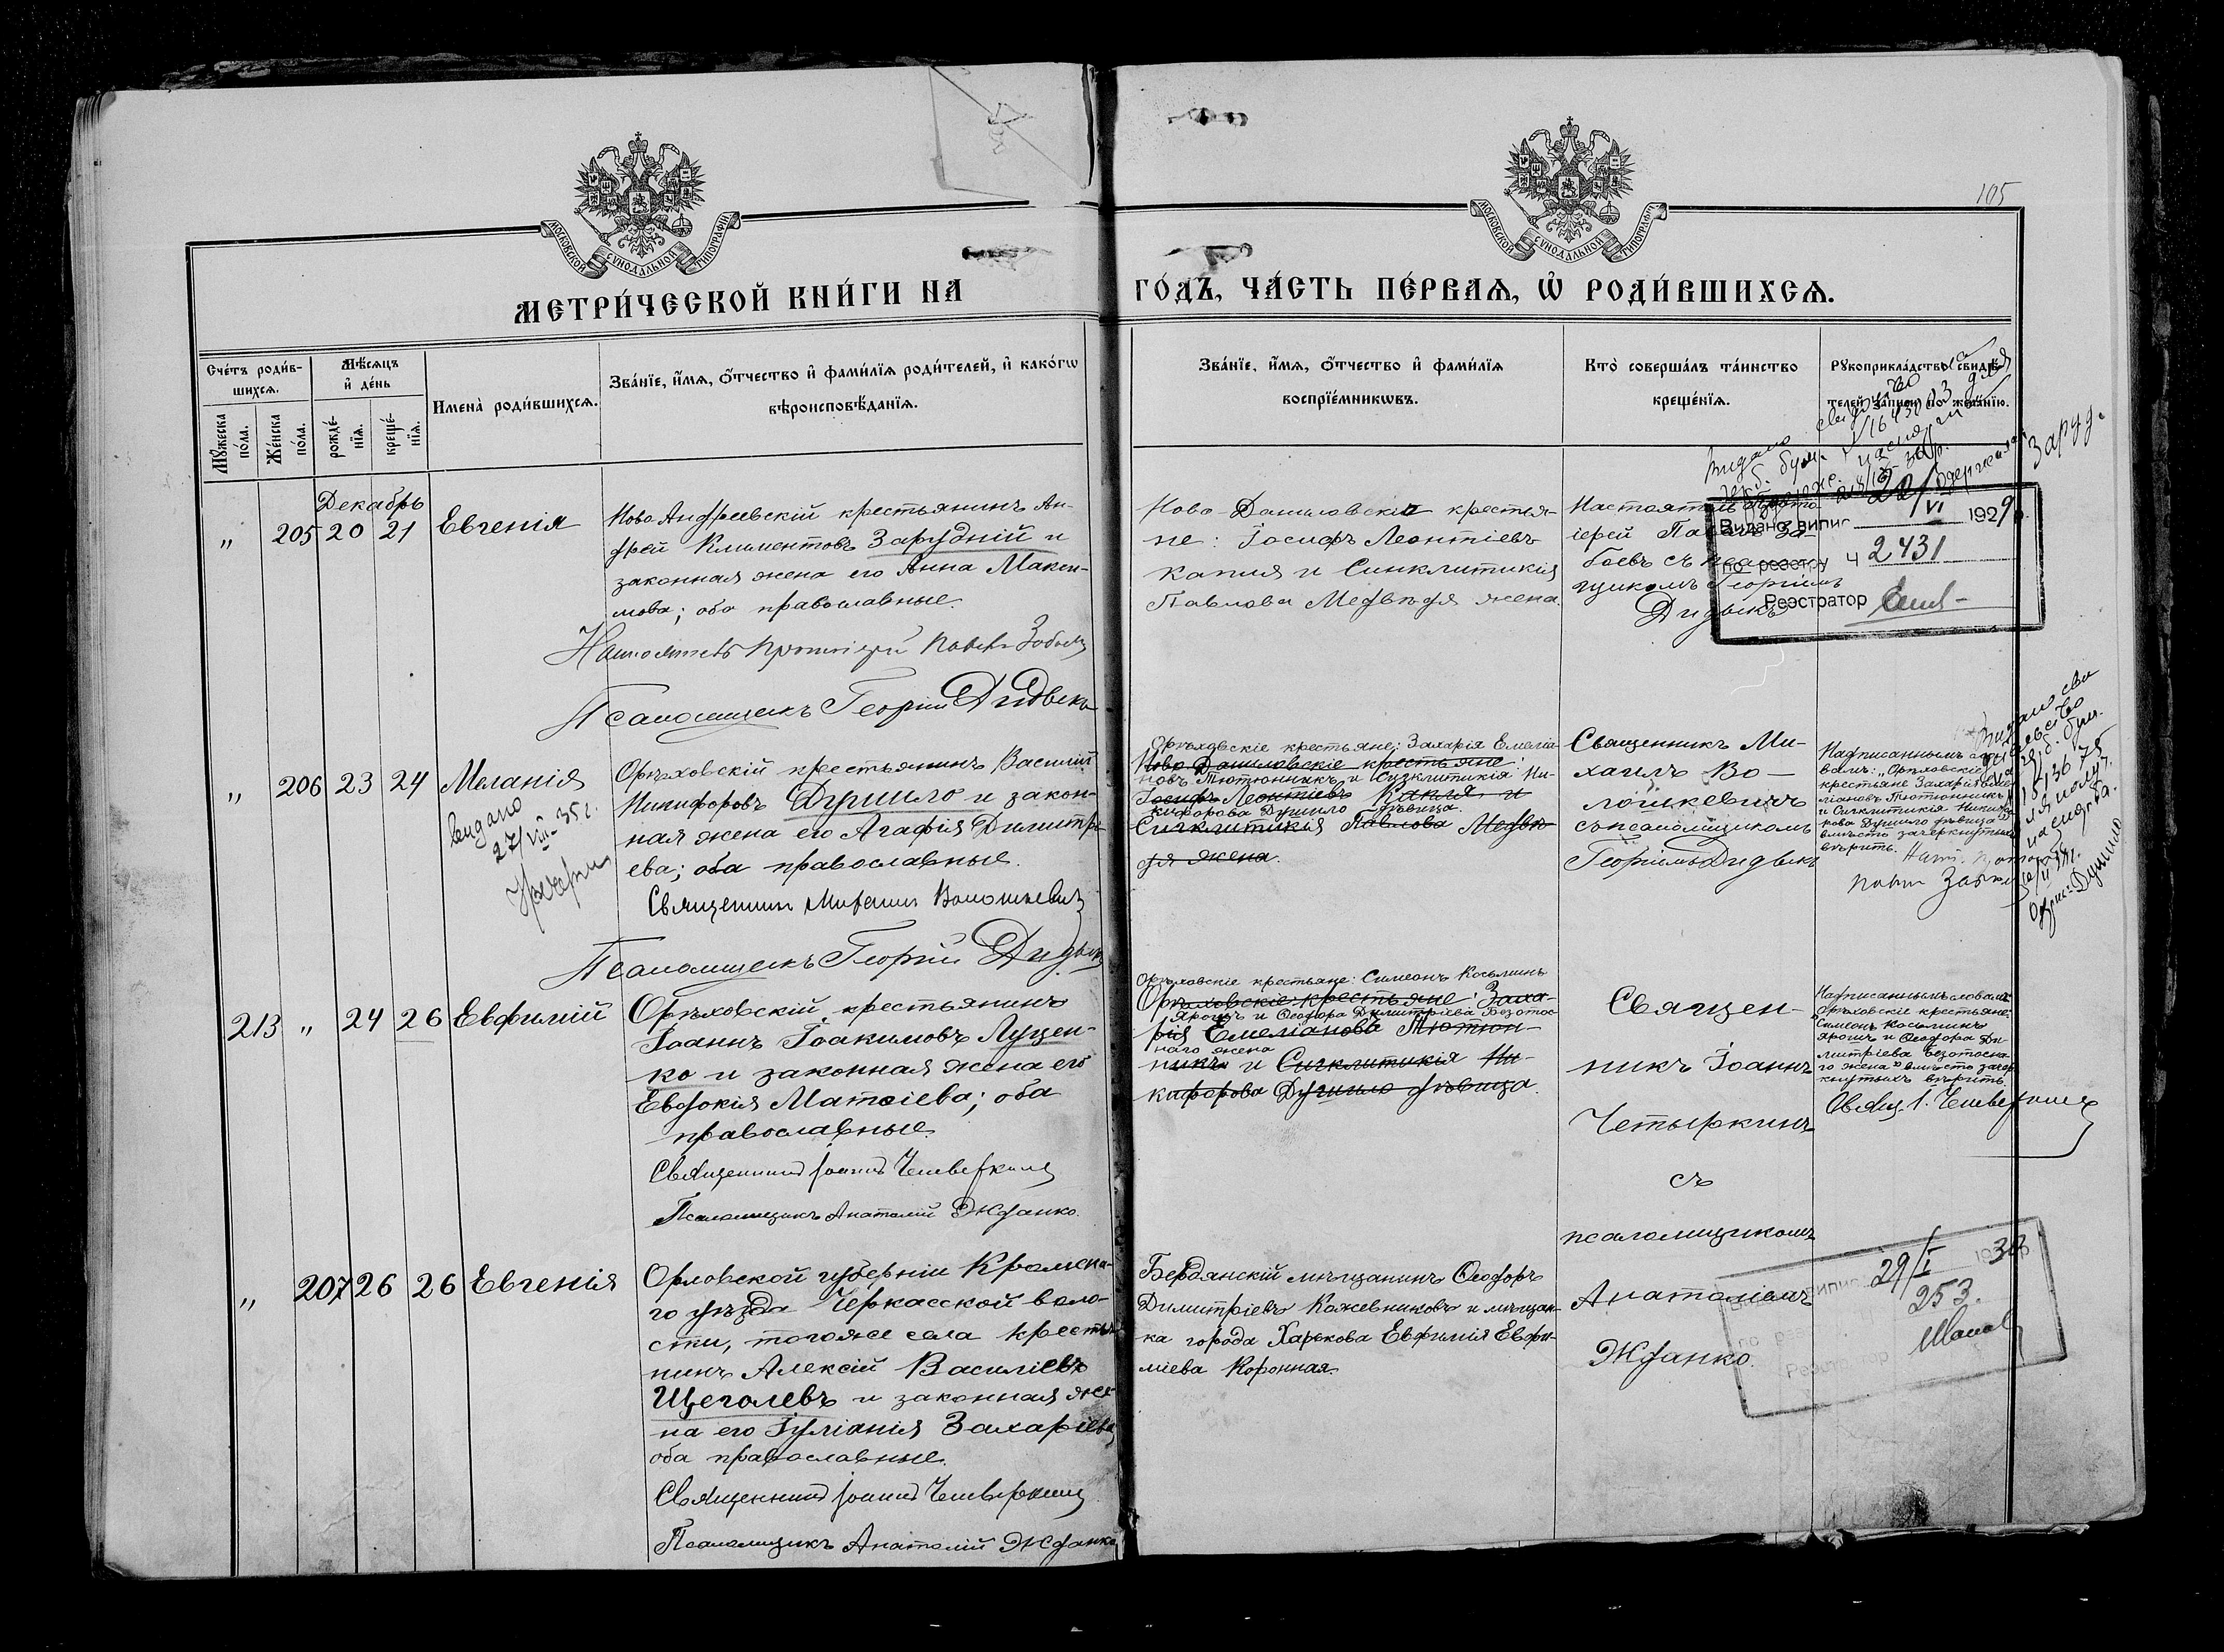 105
МОСКОВСКОЙ СѴНОДАЛЬНОЙ ТИПОГРАФІИ
МОСКОВСКОЙ СѴНОДАЛЬНОЙ ТИПОГРАФІИ
МЕТРИ́ЧЕСКОЙ КНИ́ГИ НА
ГО́ДЪ, ЧА́СТЬ ПЕ́РВАѦ, Ѡ҆ РОДИ́ВШИХСѦ.
Сче́тъ роди́в-
шихсѧ.
Мꙋ́жеска
по́ла.
Же́нска
по́ла.
Мѣ́сѧцъ
и҆ де́нь
рожде́-
нїѧ.
креще́-
нїѧ.
Имена̀ роди́вшихсѧ.
Зва́нїе, и҆́мѧ, ѻ҆́тчество и҆ фами́лїѧ роди́телей, и҆ како́гѡ
вѣроисповѣ́данїѧ.
Зва́нїе, и҆́мѧ, ѻ҆́тчество и҆ фами́лїѧ
воспрїе́мникѡвъ.
Кто̀ соверша́лъ та́инство
креще́нїѧ.
Рꙋкоприкла́дство свидѣ́-
телей за́писи по жела́нїю.
Декабрь
„ 205 20 21 Евгенія
Ново Андреевскій крестьянинъ Ан-
дрей Климентовъ Зарудній и
законная жена его Анна Макси-
мова; оба православные.
Настоятель Протоіерей Павелъ
Псаломщикъ Георгій Дидыкъ
Ново Даниловскіе крестья-
не: Іосифъ Леонтіевъ
Капля и Синклитикія
Павлова Медвѣдя жена.
Настоятель
іерей Павелъ За-
боевъ съ псалом-
щикомъ Георгіемъ
Дидыкъ
Заруд.
Видано випис 20/VI 1929
по реэстру Ч 2431
Реэстратор
„ 206 23 24 Меланія
видано
27/VIII-35 г.
Орѣховскій крестьянинъ Василій
Никифоровъ Душило и закон-
ная жена его Агафія Димитрі-
ева; оба православные.
Священникъ Михаилъ Волошкевичъ
Псаломщикъ Георгій Дидыкъ
Орѣховскіе крестьяне: Захарія Емелiа-
Ново Даниловскіе крестьяне:
новъ Тютюнникъ и Синклитикія Ни-
Іосифъ Леонтіевъ Капля и
кифорова Душило дѣвица.
Синклитикія Павлова Медвѣ-
дя жена.
Священникъ Ми-
хаилъ Во-
лошкевичъ
съ псаломщикомъ
Георгіемъ Дидыкъ
Надписаннымъ сло-
вамъ: „Орѣховскіе
крестьяне Захарія Еме-
ліановъ Тютюнникъ
и Синклитикія Никифо-
рова Душило дѣвица"
вмѣсто зачеркнутыхъ
вѣрить.
Душило
213 „ 24 26 Евфимій
Орѣховскій крестьянинъ
Іоаннъ Іоакимовъ Луцен-
ко и законная жена его
Евдокія Матѳіева; оба
православные.
Священникъ Іоаннъ Четыркинъ
Псаломщикъ Анатолій Жданко.
Орѣховскіе крестьяне: Симеонъ Косьминъ
Орѣховскіе крестьяне: Заха-
Ярошъ и Ѳеодора Димитріева Безотос-
рія Емеліановъ Тютюн-
наго жена
никъ и Синклитикія Ни-
кифорова Душило дѣвица.
Священ-
никъ Іоаннъ
Четыркинъ
съ
псаломщикомъ
Анатоліемъ
Жданко.
Надписаннымъ словамъ
„Орѣховскіе крестьяне:
Симеонъ Косьминъ
Ярошъ и Ѳеодора Ди-
митріева Безотосна-
го жена" вмѣсто зачер-
кнутыхъ вѣрить.
Свящ. І. Четыркинъ
„ 207 26 26 Евгенія
Орловской губерніи Кромска-
го уѣзда Черкасской воло-
сти, тогоже села крестья-
нинъ Алексій Василіевъ
Щеголевъ и законная же-
на его Іуліанія Захаріева
оба православные.
Священникъ Іоаннъ Четыркинъ
Псаломщикъ Анатолій Жданко
Бердянскій мѣщанинъ Ѳеодоръ
Димитріевъ Кожевниковъ и мѣщан-
ка города Харькова Евфимія Евфи-
міева Коронная.
29/I
253.
Реэстратор